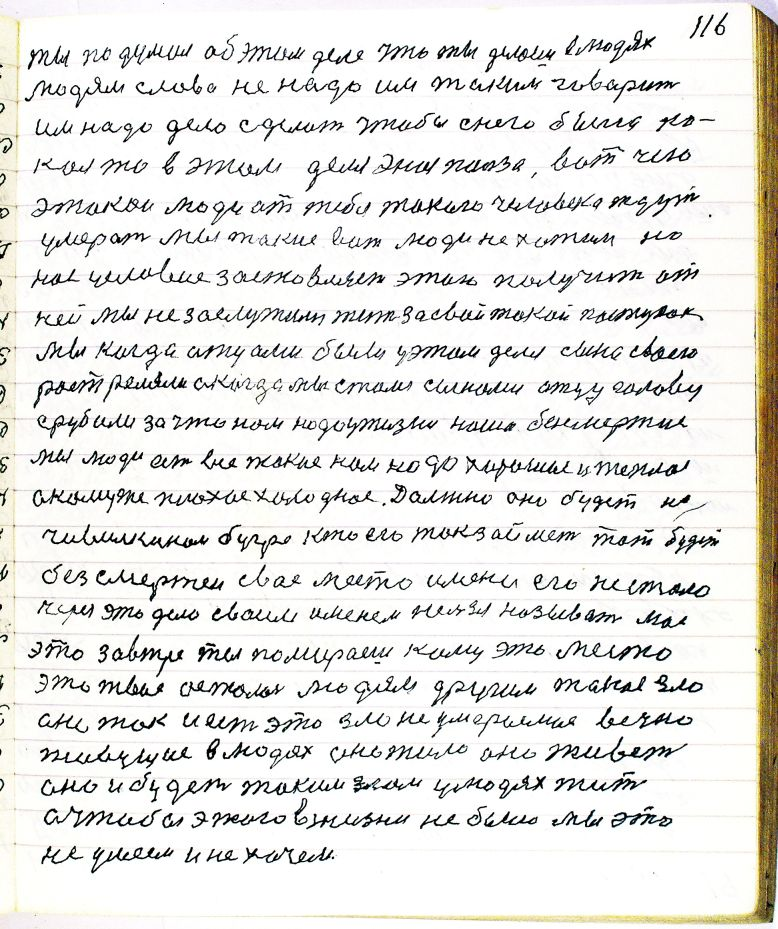 116
ты подумал об этом деле что ты делаеш в людях
людям слова не надо им таким говарит
им надо дело сделат чтобы снего была ка-
кая то в этом деля эная полза, вот чего
этакои люди от тебя такого человека ждут
умерат мы такие вот люди не хотим но
нас условие застовляет этою получит от
ней мы не заслужили жит за свой такой поступок
мы когда отцами были у этом деля сына своего
растреляли а когда мы стали сынами отцу голову
срубили за что нам надо ужизни наша безсмертие
мы люди от вне такое нам надо хорошые и теплое
акомуже плохое холодное. Должно оно будет на
чивилкином бугре кто его так займет тот будет
безсмертен свае место имени его нестало
через это дело своим именем нелзя називат мае
это завтре ты помираеш кому это место
это твае осталос людям другим такое зло
оно так и ест это зло не умераемое вечно
живущие в людях оно жило оно живет
оно и будет таким злом у людях жит
а чтобы этого в жизни не было мы это
не умеем и не хочем.